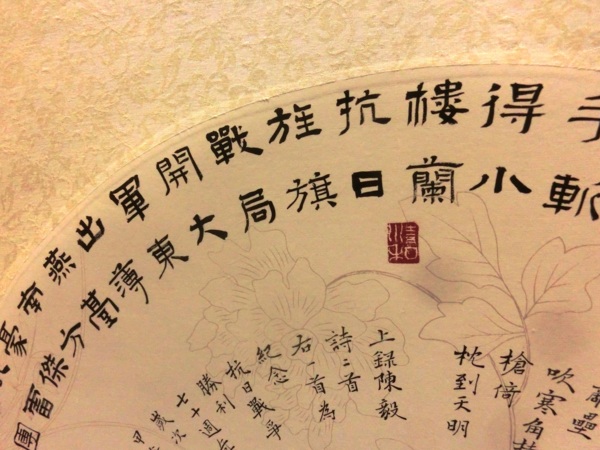 手斬
得小
樓蘭
抗日
旌旗
戰局
開大
軍東
出薄
燕臺
南方
豪傑
雷
團
壘
吹寒角
槍倚
枕到天明
上錄陳毅
詩二首
右一首為
紀念
抗日戰爭
勝利
七十週
歲次
甲